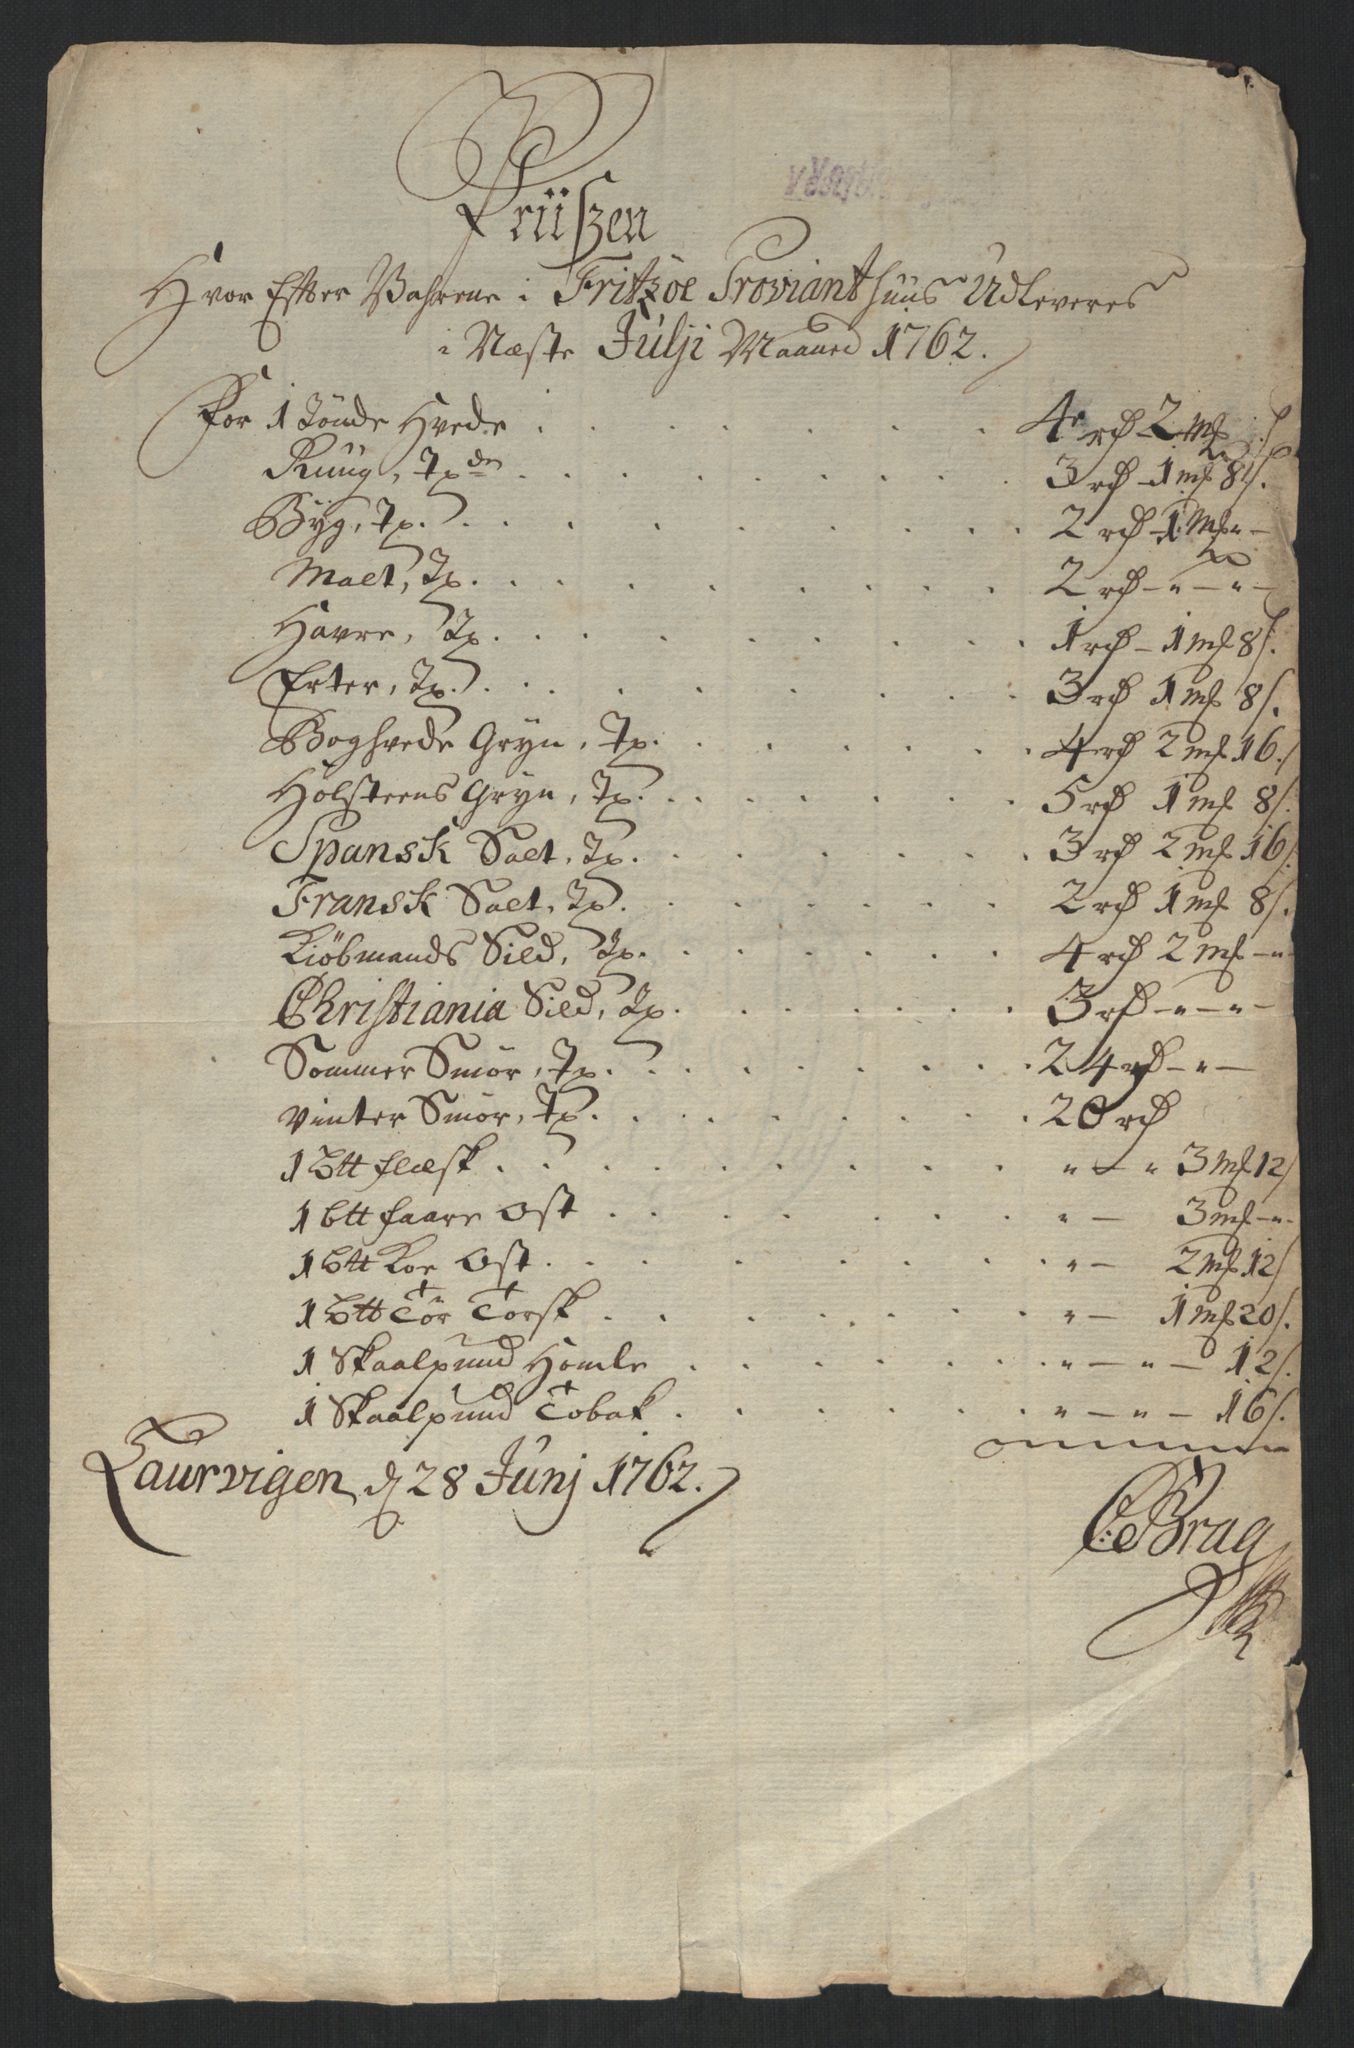 Priiszen
Hvor Efter Vahrene i Fritzöe Provianthuus Udleveres
i Næste Julji Maaned 1762.
For 1 Tönde Hvede . . . . . . 4 rd 2 mf
Ruug, Tde . . . . . . 3 rd 1 mf 8 s.
Byg, Td. . . . . . . 2 rd 1 mf " –
Malt, Td. . . . . . . 2 rd – " – " –
Havre, Td. . . . . . . 1 rd – 1 mf 8 s.
Erter, Td. . . . . . . 3 rd 1 mf 8 s.
Boghvede Gryn, Td. . . . . . . 4 rd 2 mf 16 s
Holsteens Gryn, Td. . . . . . . 5 rd 1 mf 8 s.
Spansk Salt, Td. . . . . . . 3 rd 2 mf 16 s.
Fransk Salt, Td. . . . . . . 2 rd 1 mf 8 s.
Kiöbmands Sild, Td. . . . . . . 4 rd 2 mf – "
Christiania Sild, Td. . . . . . . 3 rd – " – " –
Sommer Smör, Td. . . . . . . 24 rd – " –
Vinter Smör, Td. . . . . . . 20 rd
1 Btt flæsk . . . . . . " – " 3 mf 12 s
1 btt faare Ost . . . . . . " – 3 mf – "
1 Btt Koe Ost . . . . . . " – 2 mf 12 s
1 Btt Tör Torsk . . . . . . " – 1 mf 20 s.
1 Skaalpund Homle . . . . . . " – " – 12 s.
1 Skaalpund Tobak . . . . . . " – " – 16 s.
Laurvigen d 28 Junj 1762.
C: Brag